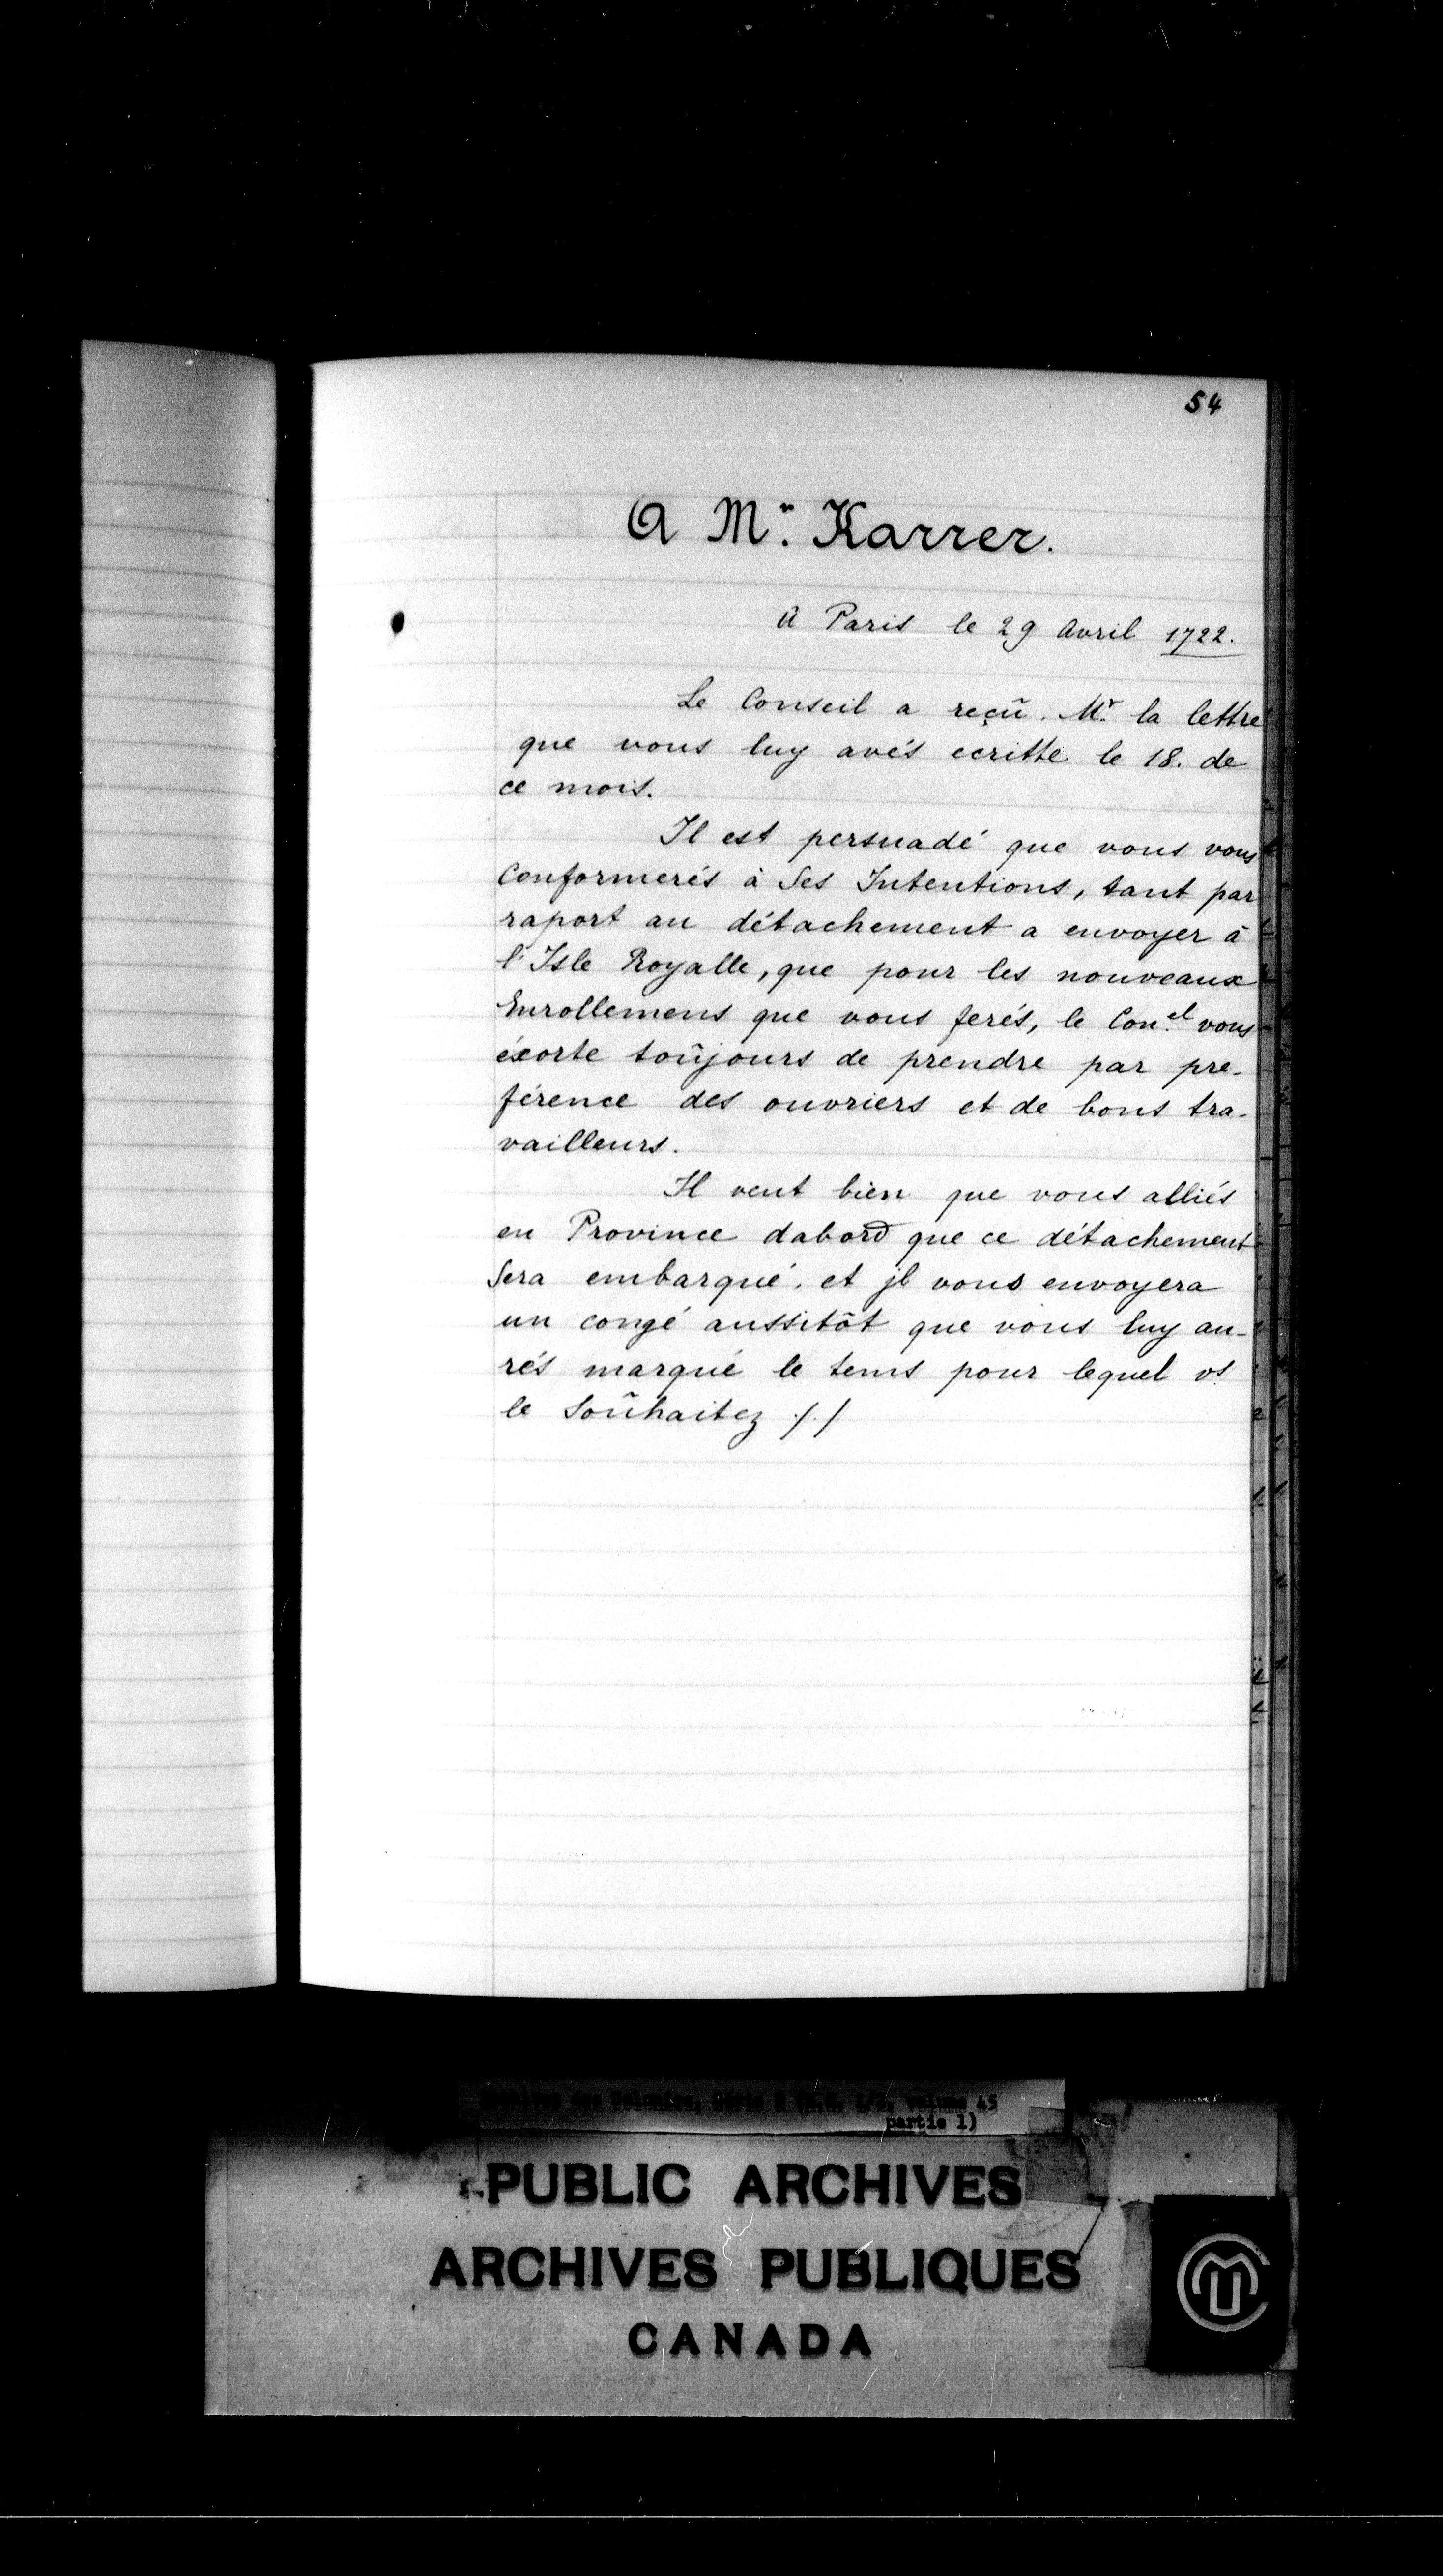 54
A Mr. Karrer.
A Paris le 29 Avril 1722.
Le Conseil a reçû. Mr. la lettre
que vous luy avés ecritte le 18. de
ce mois.
Il est persuadé que vous vous
Conformerés à Ses Intentions, tant par
raport au détachement a envoyer à
l'Isle Royalle, que pour les nouveaux
Enrollemens que vous ferés, le Con.el vous
éxorte toûjours de prendre par pre-
férence des ouvriers et de bons tra-
vailleurs.
Il veut bien que vous alliés
en Province dabord que ce détachement
Sera embarqué. et jl vous envoyera
un congé aussitôt que vous luy au-
rés marqué le tems pour lequel vs
le Souhaitez ./.
45
partie 1)
PUBLIC ARCHIVES
ARCHIVES PUBLIQUES
CANADA